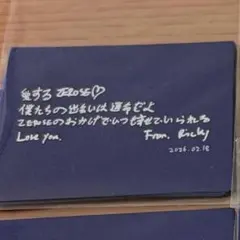 愛する ZEROSE♡
僕たちの出会いは運命だよ
ZEROSEのおかげでいつも幸せでいられる
Love you. From. Ricky
2026.02.18